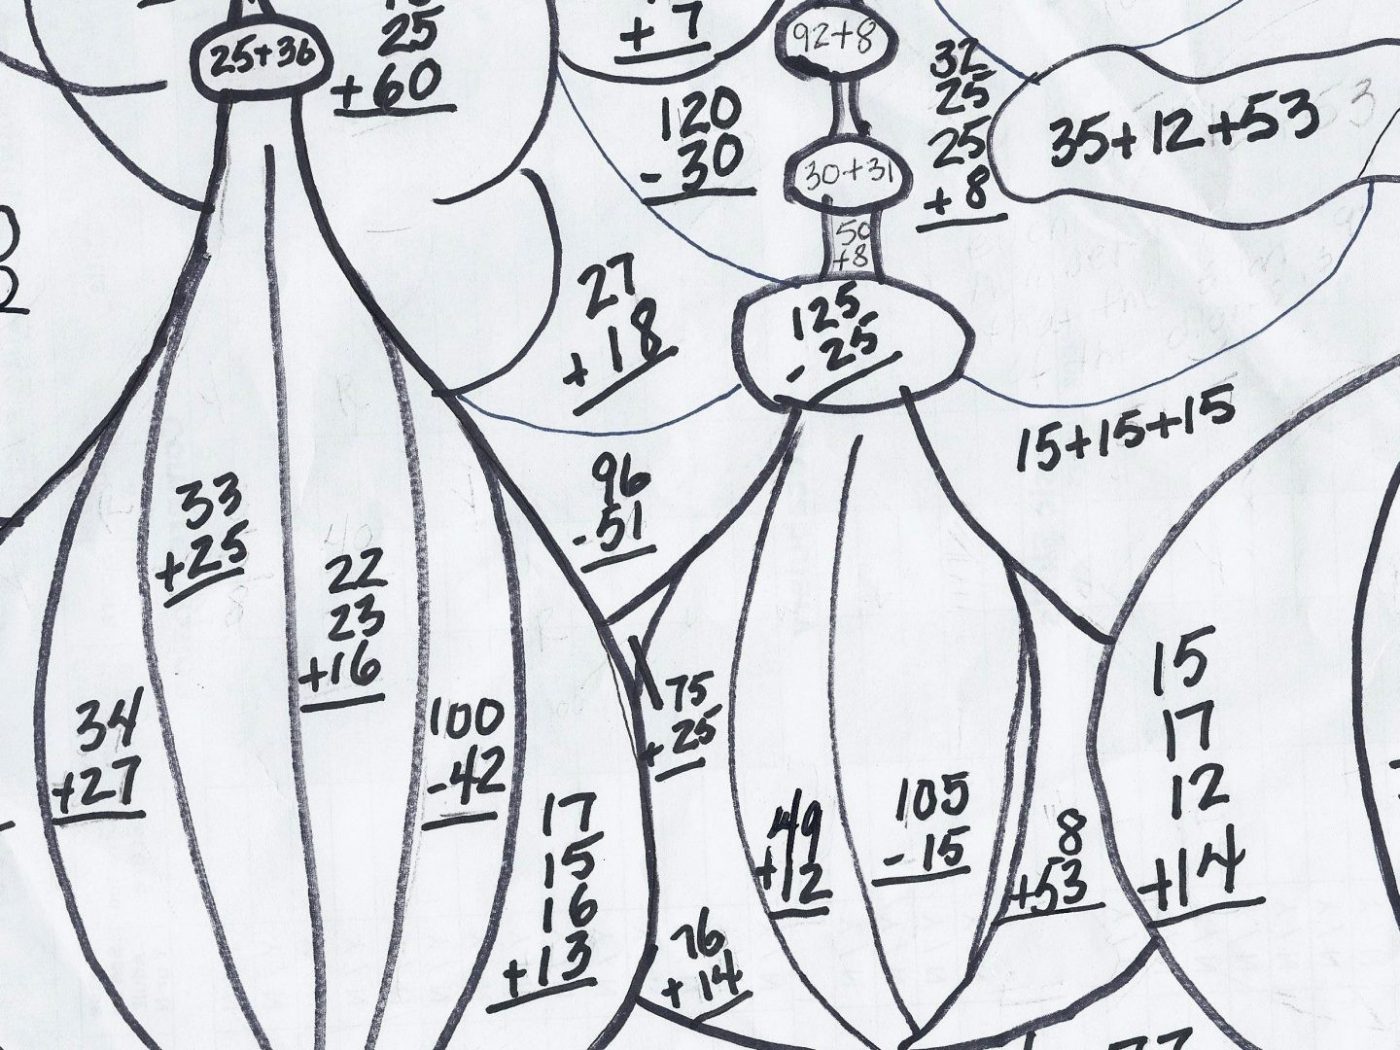 25+36
25
+60
+7
120
-30
92+8
30+31
50
+8
32
25
25
+8
35+12+53
27
+18
125
-25
15+15+15
96
-51
33
+25
22
23
+16
34
+27
100
-42
17
15
16
+13
75
+25
76
+14
49
+12
105
-15
8
+53
15
17
12
+14